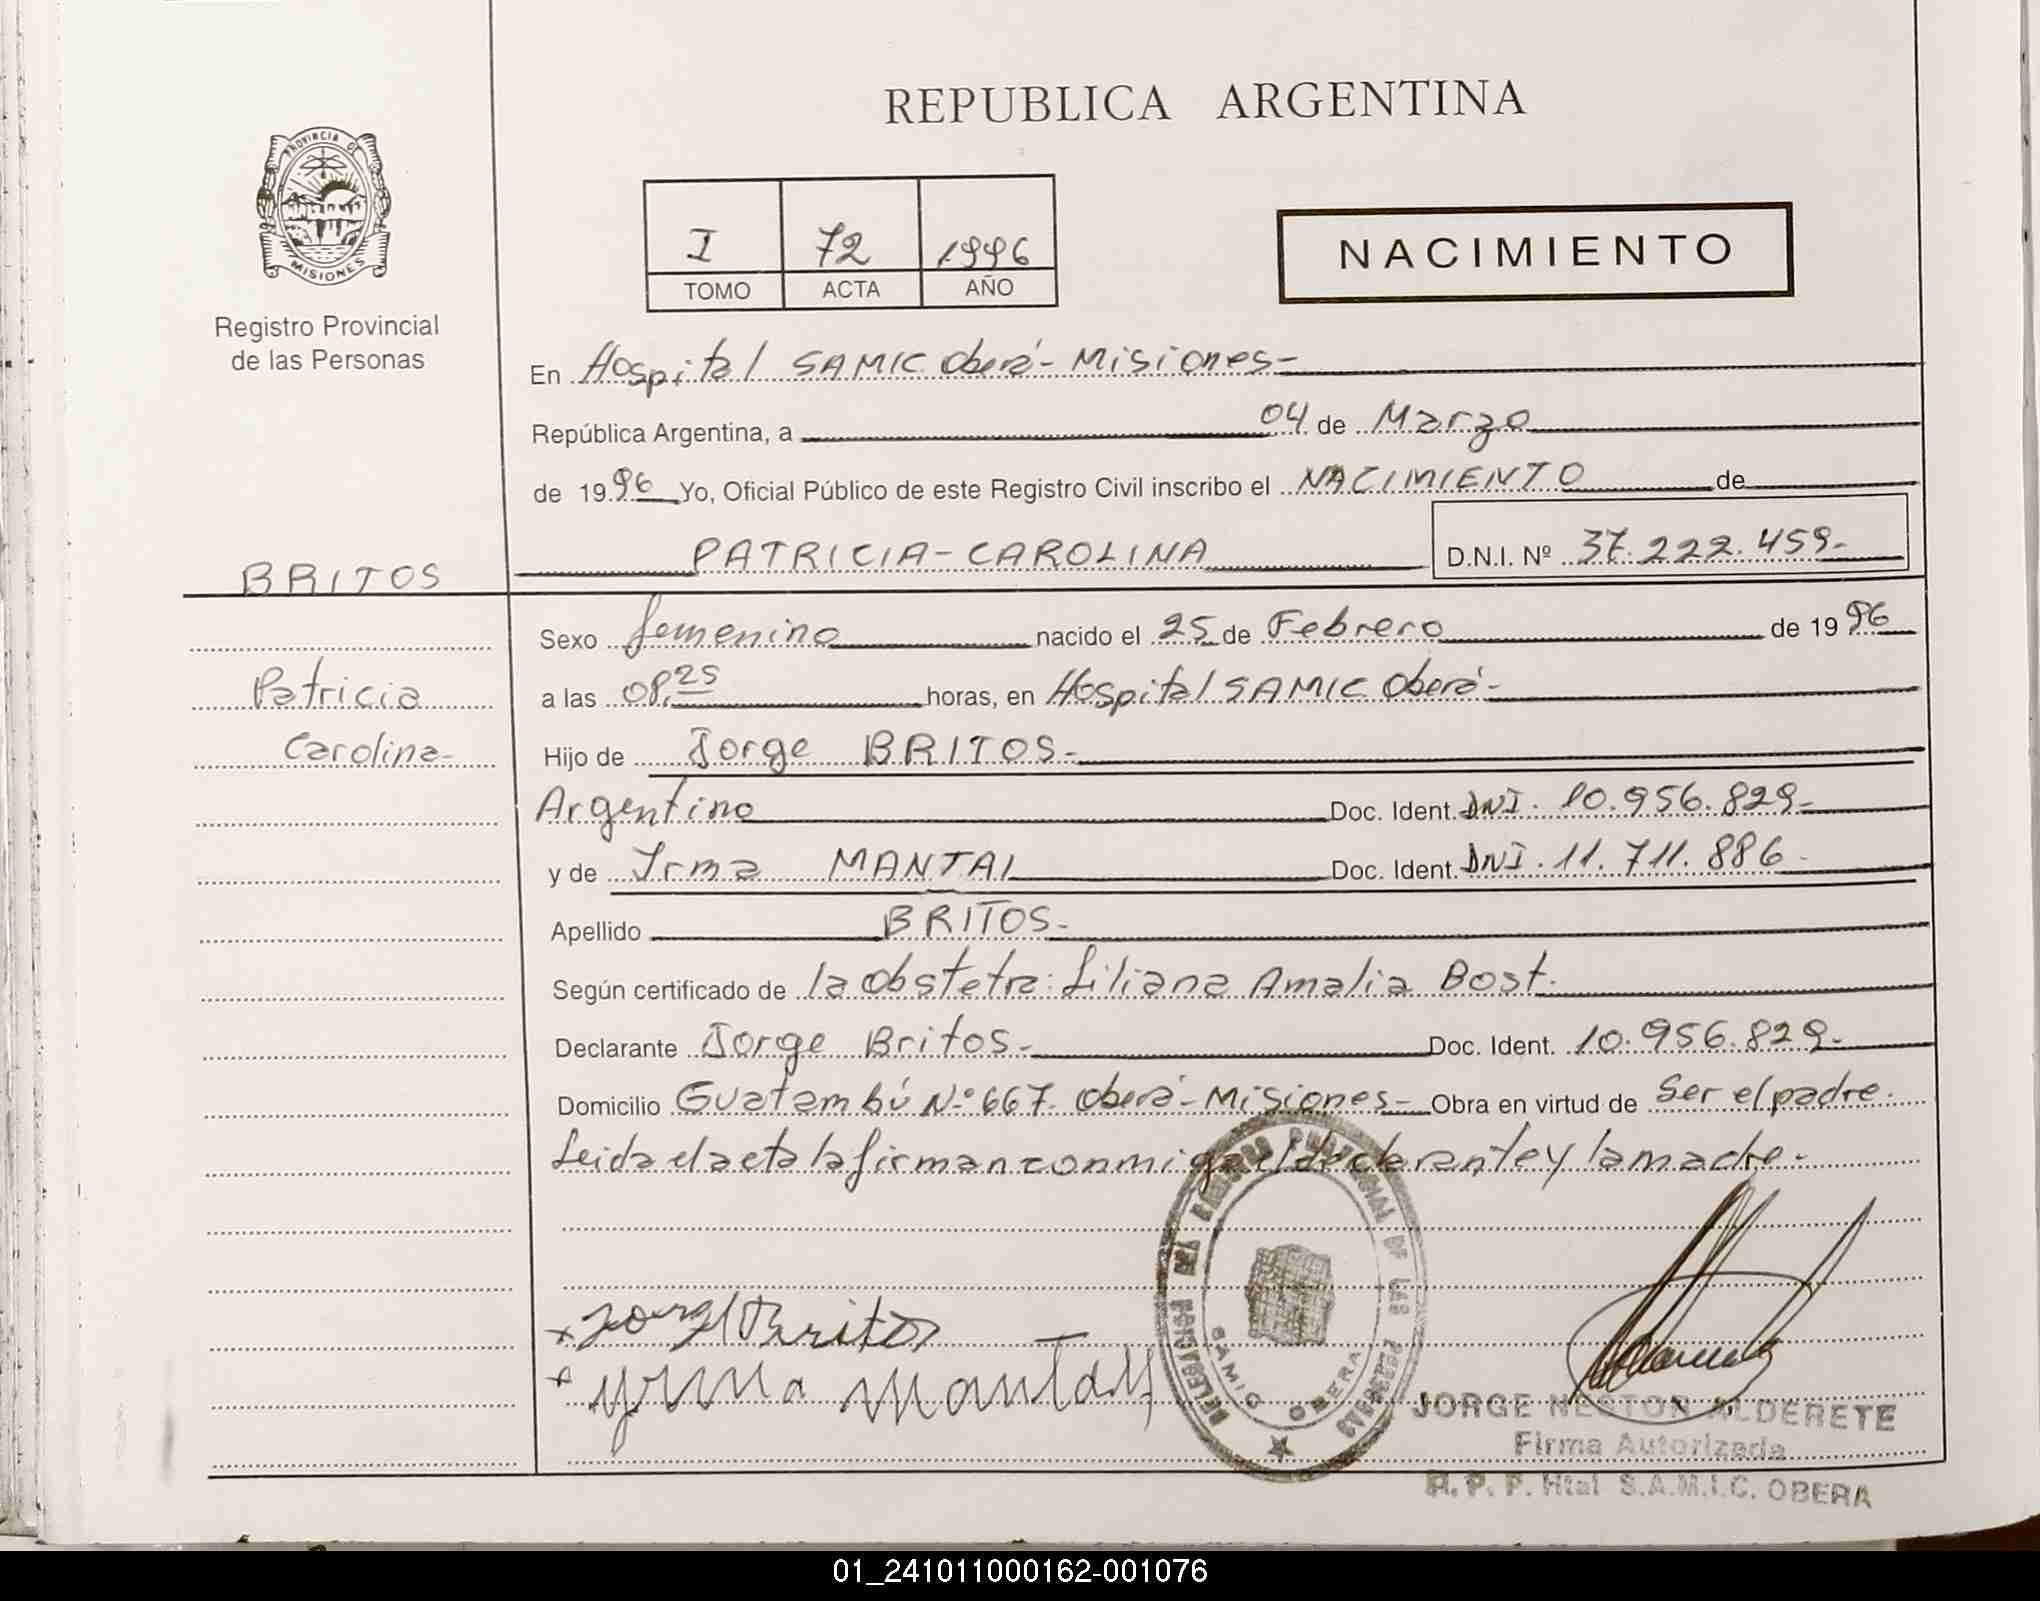 REPUBLICA ARGENTINA
PROVINCIA DE
MISIONES
Registro Provincial
de las Personas
I 72 1996
TOMO ACTA AÑO
NACIMIENTO
En Hospital SAMIC Oberá - Misiones -
República Argentina, a 04 de Marzo
de 1996 Yo, Oficial Público de este Registro Civil inscribo el NACIMIENTO de
BRITOS
PATRICIA - CAROLINA D.N.I. Nº 37.222.459-
Patricia
Carolina-
Sexo femenino nacido el 25 de Febrero de 1996
a las 08,25 horas, en Hospital SAMIC Oberá-
Hijo de Jorge BRITOS-
Argentino Doc. Ident. DNI. 10.956.829-
y de Irma MANTAI Doc. Ident. DNI. 11.711.886-
Apellido BRITOS-
Según certificado de la obstetra: Liliana Amalia Bost.
Declarante Jorge Britos- Doc. Ident. 10.956.829-
Domicilio Guatambú Nº 667. Oberá - Misiones - Obra en virtud de Ser el padre.
Leida el acta la firman conmigo el declarante y la madre.
DELEGACION DEL REGISTRO PROVINCIAL DE LAS PERSONAS
SAMIC OBERA
x Jorge Britos
x Yrma Mantay
JORGE NESTOR ALDERETE
Firma Autorizada
R. P. P. Htal S.A.M.I.C. OBERA
01_241011000162-001076